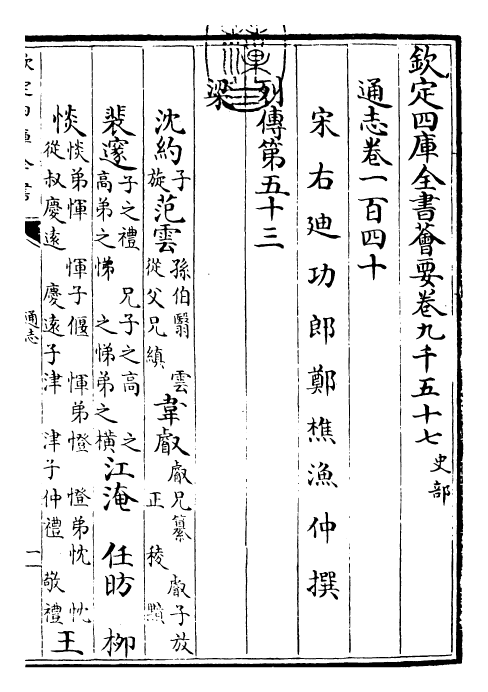 欽定四庫全書薈要卷九千五十七 史部
通志卷一百四十
宋右迪功郎鄭樵漁仲撰
列傳第五十三
梁
沈約 子旋 范雲 孫伯翳 雲從父兄縝 韋叡 叡兄纂 叡子放 正 稜 黯
裴邃 子之禮 兄子之高 之高弟之悌 之悌弟之橫 江淹 任昉 柳
惔 惔弟惲 惲子偃 惲弟憕 憕弟忱 忱從叔慶遠 慶遠子津 津子仲禮 敬禮 王
欽定四庫全書
通志
一